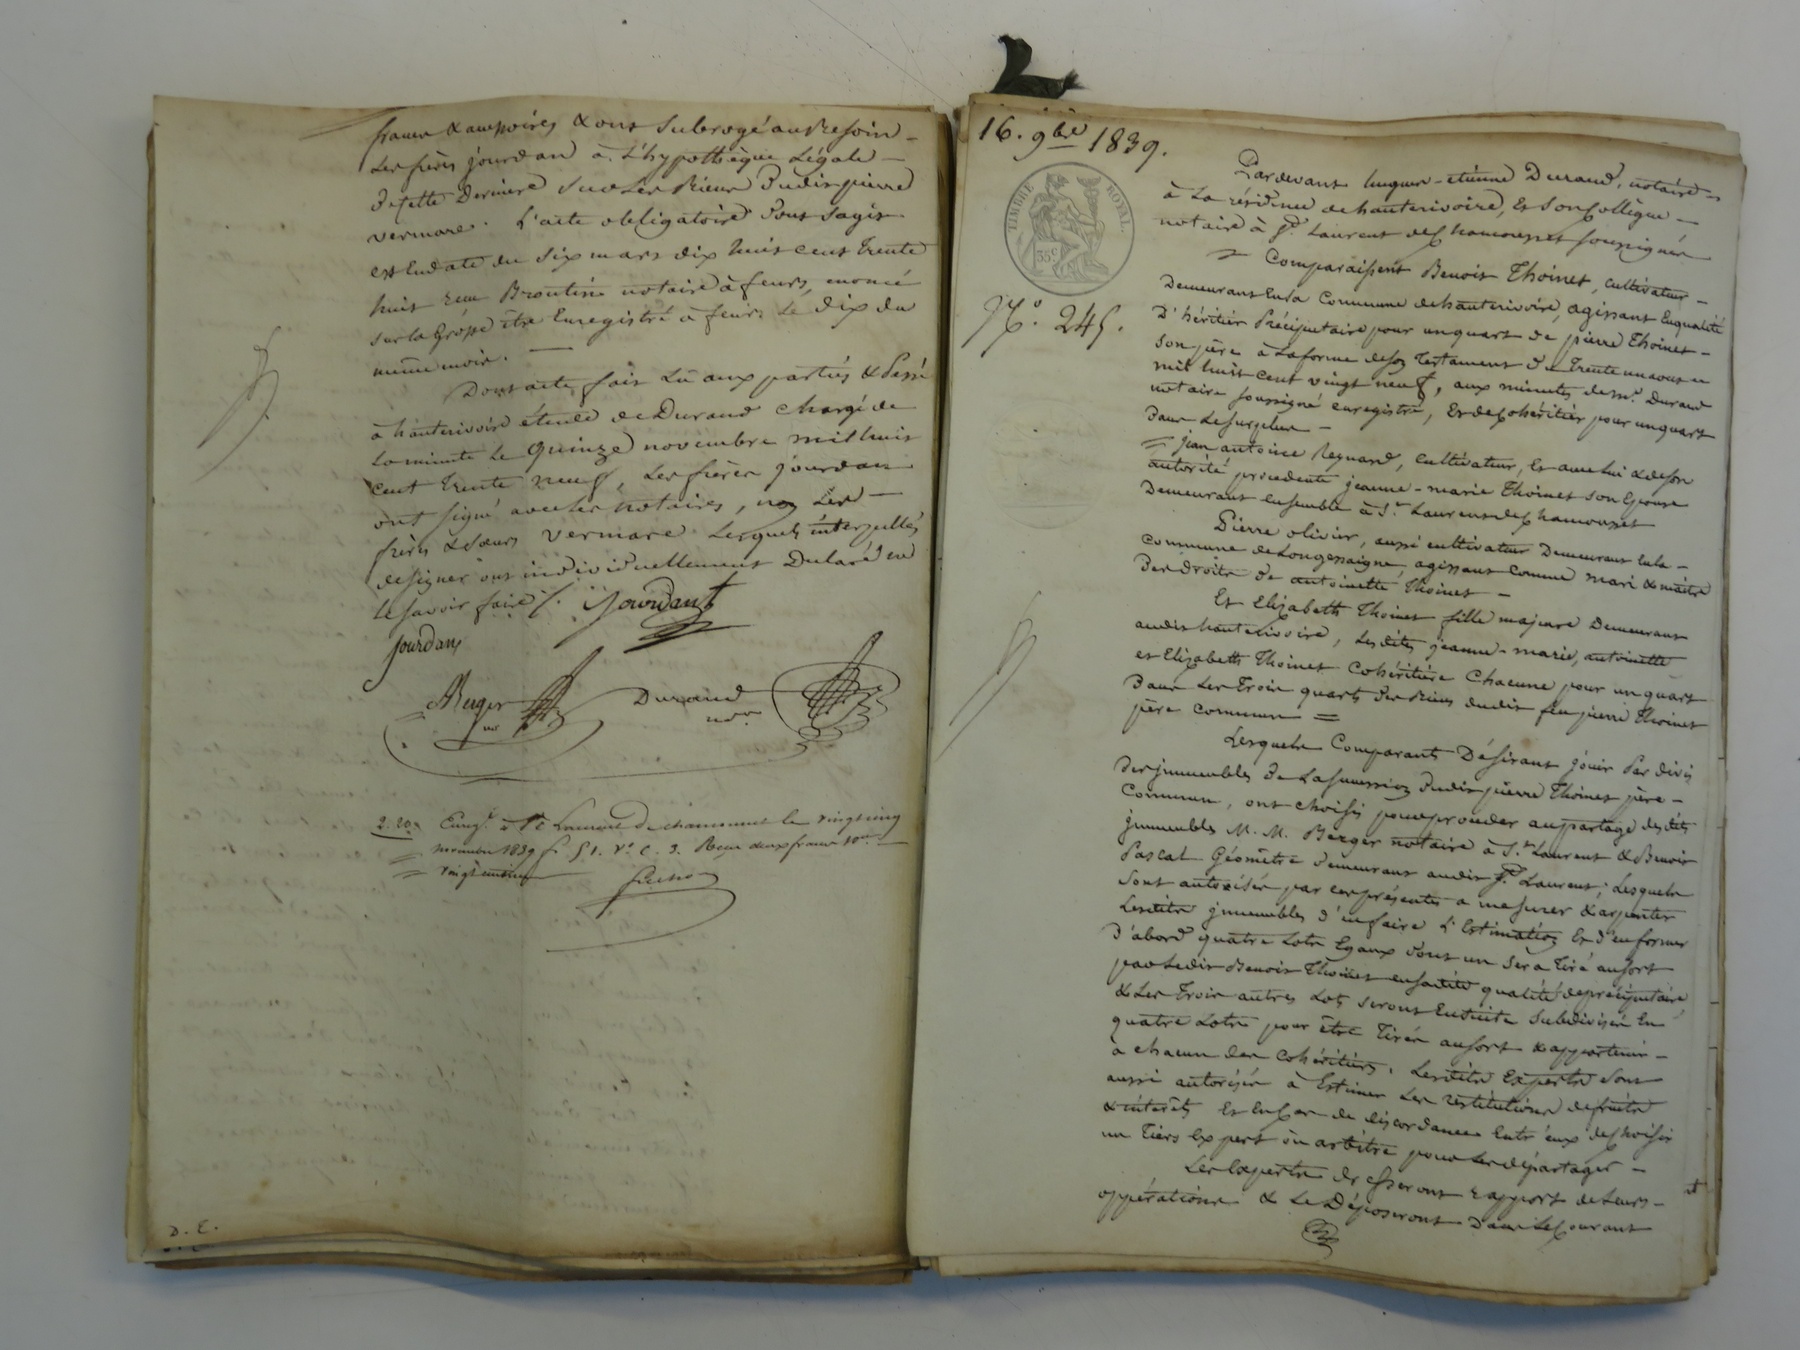 francs & accessoires & ont subrogé au besoin -
les frères jourdan à L'hypothèque Légale -
de cette derniere sur les Biens dudit pierre
vermare. L'acte obligatoire dont s'agit
est en date du six mars dix huit cent trente
huit reçu Broutin notaire à feurs, énoncé
sur la Grosse être Enregistré à feurs le dix du
même mois. -
Dont acte, fait Lû aux parties & Passé
à hauterivoire étude de Durand chargé de
la minute le quinze novembre mil huit
cent trente neuf, Les frères jourdan
ont signé avec les notaires, non Les -
frères & sœurs vermare Lesquels interpellés
de signer ont individuellement Déclaré ne
le savoir faire /. Jourdant
jourdan
Berger nre Durand nore
2.20 Enregé à St Laurent de chamousset le vingt cinq
novembre 1839 fo 51. Vo C. 3. Reçu deux francs 10me
vingt centimes
D. E.
16. 9bre 1839.
TIMBRE ROYAL.
35c
No. 245.
Pardevant hugues-etienne Durand, notaire -
à La résidence de hauterivoire, Et son Collègue -
notaire à St. Laurent de Chamousset soussignés
= Comparaissent Benoit Thoinet, cultivateur -
Demeurant En la Commune de hauterivoire, agissant En qualité
D'héritier Précipuitaire pour un quart de pierre Thoinet -
son père à La forme de son Testament du Trente un aout
mil huit cent vingt neuf, aux minutes de Me. Durand
notaire soussigné enregistré, Et de Cohéritier pour un quart
Dans Le surplus -
= jean antoine Reynard, Cultivateur, Et avec lui & de son
autorité procedente jeanne-marie Thoinet son Epouse
Demeurant ensemble à St. Laurent de Chamousset
Pierre olivier, aussi cultivateur Demeurant En la -
Commune de Longessaigne, agissant Comme mari & maître
Des droits de antoinette Thoinet -
Et Elizabeth Thoinet fille majeure Demeurant
audit hauterivoire, Les dites jeanne-marie, antoinette
et Elizabeth Thoinet Cohéritière Chacune pour un quart
Dans Les Trois quarts des Biens dudit feu pierre Thoinet
père commun =
Lesquels Comparants Désirant jouir Par divis
Des jmmeubles De La succession dudit pierre Thoinet père -
Commun, ont choisi pour procéder au partage desdits
jmmeubles M. M. Berger notaire à St. Laurent & Benoit
Pascal Géomètre demeurant audit St. Laurent; Lesquels
Sont autorisés par ces présentes a mesurer & arpenter
Lesdits jmmeubles d'en faire L'Estimation Et d'en former
D'abord quatre Lots Egaux dont un sera Tiré au sort
par Ledit Benoit Thoinet en sa dite qualité de précipuitaire,
& Les Trois autres Lots seront Ensuite subdivisés En
quatre Lots pour être Tirés au sort & appartenir -
à chacun des cohéritiers, Lesdits Experts sont
aussi autorisés à Estimer Les restitutions de fruits
& intérêts Et En Cas de discordance Entr'eux de Choisir
un Tiers Expert où arbitre pour Les départager -
Les Experts dresseront rapport de Leurs -
oppérations & Le Déposeront Dans Le Courant